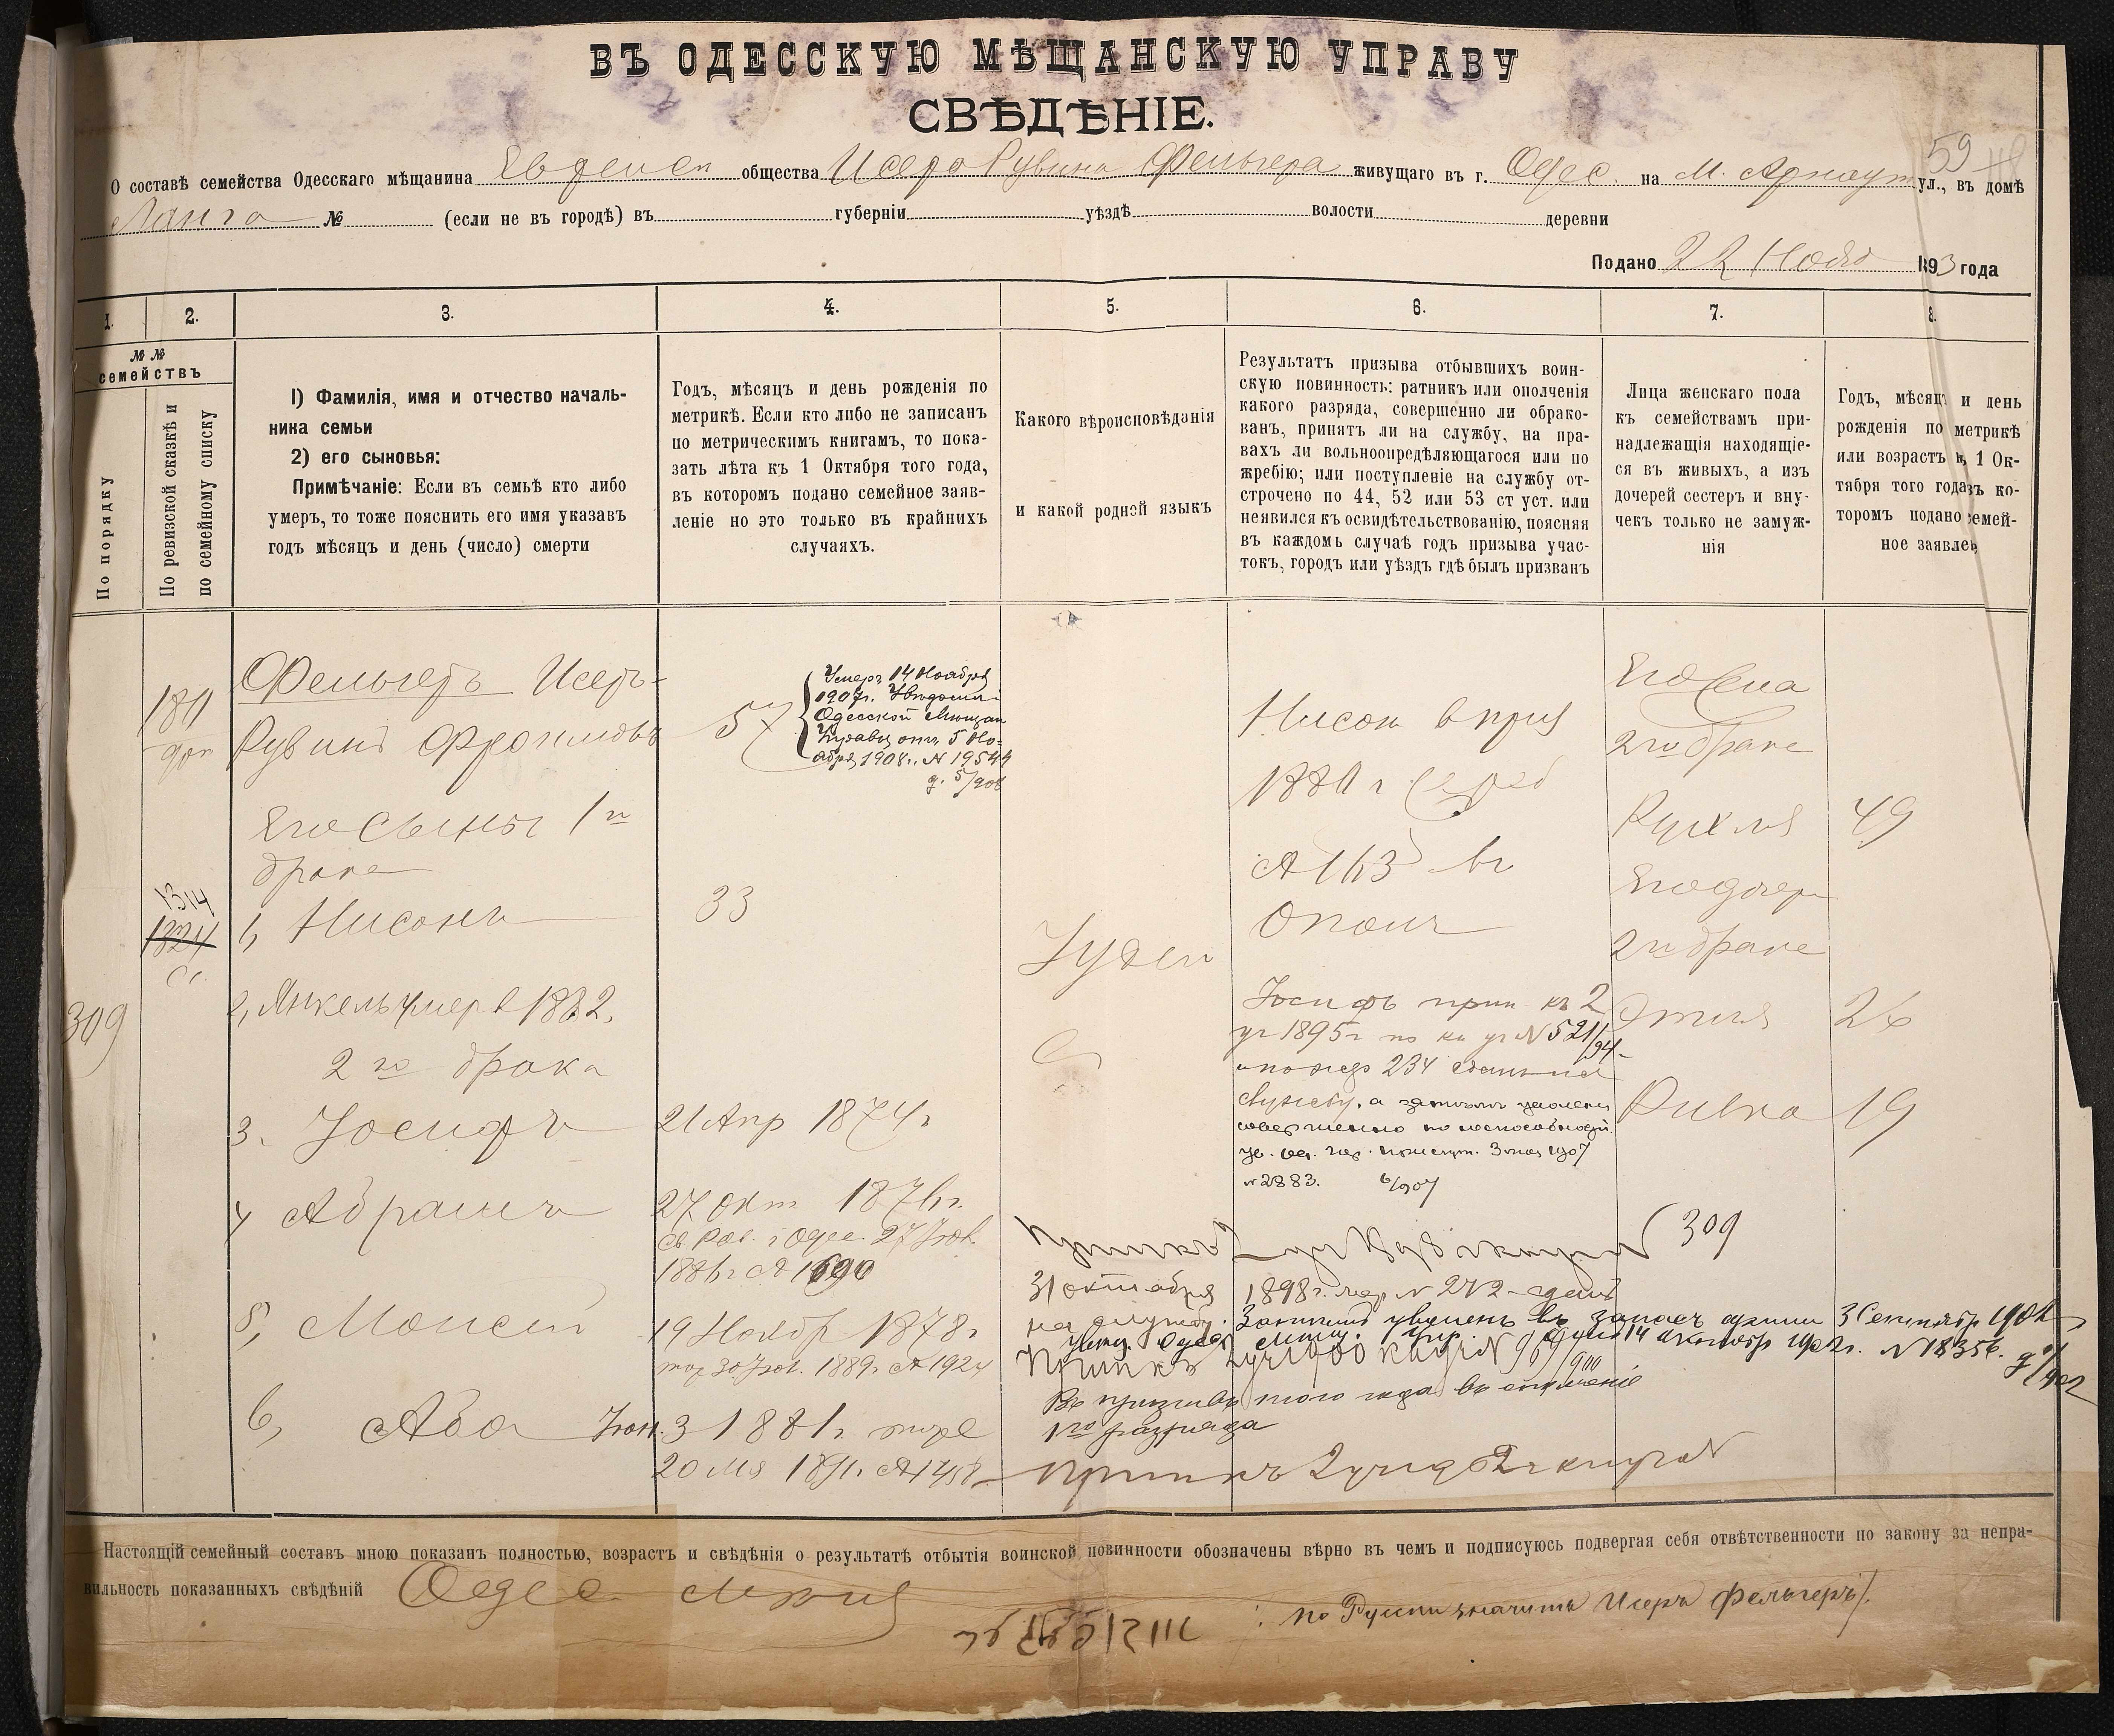 ВЪ ОДЕССКУЮ МѢЩАНСКУЮ УПРАВУ
СВѢДѢНІЕ.
59
О составѣ семейства Одесскаго мѣщанина Еврейск общества Исера Рувина Фельгера живущаго въ г. Одес. на М. Арнаут ул., въ домѣ
Ланга № (если не въ городѣ) въ губерніи уѣздѣ волости деревни
Подано 22 Нояб 1893 года
1. 2. 3. 4. 5. 6. 7. 8.
№ №
семействъ
По порядку
По ревизской сказкѣ и
по семейному списку
1) Фамилія, имя и отчество началь-
ника семьи
2) его сыновья:
Примѣчаніе: Если въ семьѣ кто либо
умеръ, то тоже пояснить его имя указавъ
годъ мѣсяцъ и день (число) смерти
Годъ, мѣсяцъ и день рожденія по
метрикѣ. Если кто либо не записанъ
по метрическимъ книгамъ, то пока-
зать лѣта къ 1 Октября того года,
въ которомъ подано семейное заяв-
леніе но это только въ крайнихъ
случаяхъ.
Какого вѣроисповѣданія
и какой родной языкъ
Результатъ призыва отбывшихъ воин-
скую повинность: ратникъ или ополченія
какого разряда, совершенно ли обрако-
ванъ, принятъ ли на службу, на пра-
вахъ ли вольноопредѣляющагося или по
жребію; или поступленіе на службу от-
строчено по 44, 52 или 53 ст уст. или
неявился къ освидѣтельствованію, поясняя
въ каждомъ случаѣ годъ призыва учас-
токъ, городъ или уѣздъ гдѣ былъ призванъ
Лица женскаго пола
къ семействамъ при-
надлежащія находящіе-
ся въ живыхъ, а изъ
дочерей сестеръ и вну-
чекъ только не замуж-
нія
Годъ, мѣсяцъ и день
рожденія по метрикѣ
или возрастъ къ 1 Ок-
тября того года въ ко-
торомъ подано семей-
ное заявлен
309
180
доп
1314
1324
Фельгеръ Исеръ-
Рувинъ Фроимовъ
Его Сыновья 1го
брака
1, Нисонъ
2, Янкель умеръ 1882.
2го брака
3. Іосифъ
4 Абрамъ
5, Моисей
6, Аба
57
Умеръ 14 Ноября
1907г. Увѣдомленіе
Одесской Мѣщан
Управы отъ 5 Но-
ября 1908г. № 19544
33
21 Апр 1874г
27 Окт 1876г.
Св Рав. г Одес. 27 Янв.
1886г
19 Ноябр 1878г
30 Янв. 1889г. № 1924
Янв. 3 1881г.
20 1891г.
Іудей
Нисон в приз
1880 г
№ 163
Ополч
Іосифъ прин къ 2
уч 1895г по кн уч № 521/94
и по жер 234 сданъ на
службу, а затѣмъ уволенъ
совершенно по неспособности
3 мая 1907
№ 2883.
Его Жена
2го брака
Рухля 49
Его дочери
2го брака
Этля 26
Ривка 19
309
31 октября 1898г. жер № 272 сданъ
на службу. Затѣмъ уволенъ въ запасъ арміи 3 Сентябр 1902
увед. Одес. Мѣщ. Упр. 14 Октябр 1902г. № 18356.
Прип къ 2 уч 1900 кн уч № 969/900
Въ призывъ того года въ ополченіе
1го разряда
Настоящій семейный составъ мною показанъ полностью, возрастъ и свѣдѣнія о результатѣ отбытія воинской повинности обозначены вѣрно въ чемъ и подписуюсь подвергая себя отвѣтственности по закону за непра-
вильность показанныхъ свѣдѣній Одес Мѣщ
По Русски значитъ Исеръ Фельгеръ/.